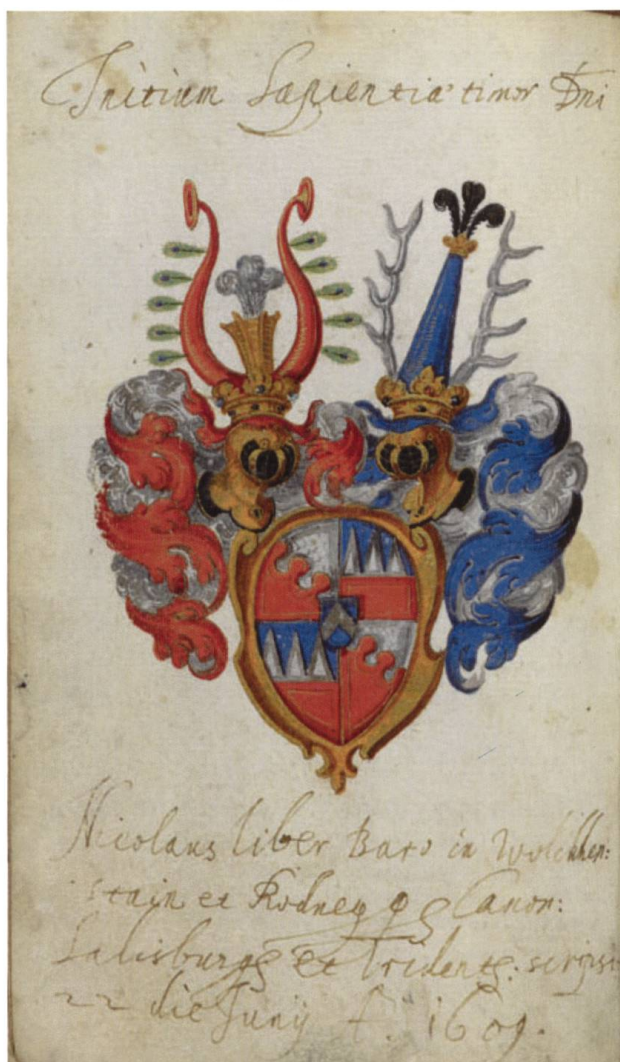 Initium Sapientiæ timor Dni
Nicolaus liber Baro in Wolckhen:
stain et Rodneg Canon:
Salisburg et Trident: scripsi
22 die Junij A. 1609.